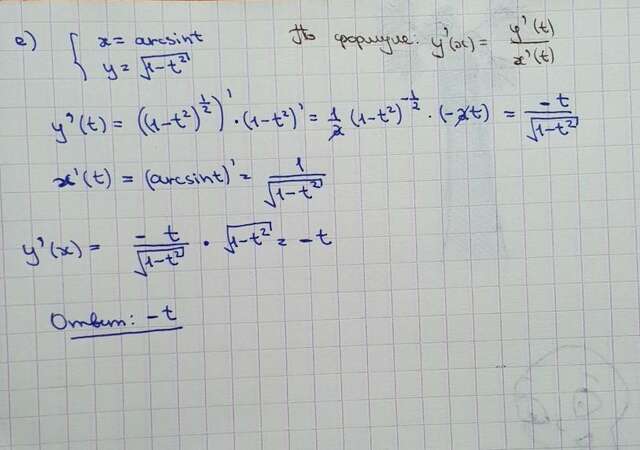 е) { x = arcsint По формуле: y'(x) = y'(t) / x'(t)
y = √(1-t²)
y'(t) = ((1-t²)^(1/2))' · (1-t²)' = 1/2 (1-t²)^(-1/2) · (-2t) = -t / √(1-t²)
x'(t) = (arcsint)' = 1 / √(1-t²)
y'(x) = -t / √(1-t²) · √(1-t²) = -t
Ответ: -t